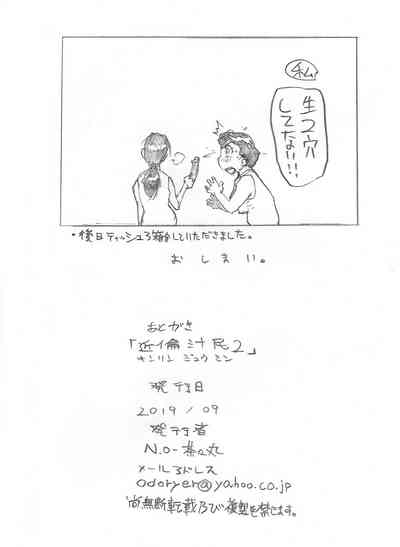 私
生2穴
してない!!
・後日ティッシュ3箱分していただきました。
おしまい。
おとがき
「近倫汁民2」
キンリン ジュウ ミン
発行日
2019/09
発行者
N.O-茶々丸
メールアドレス
odoryer@yahoo.co.jp
尚無断転載及び複製を禁じます。